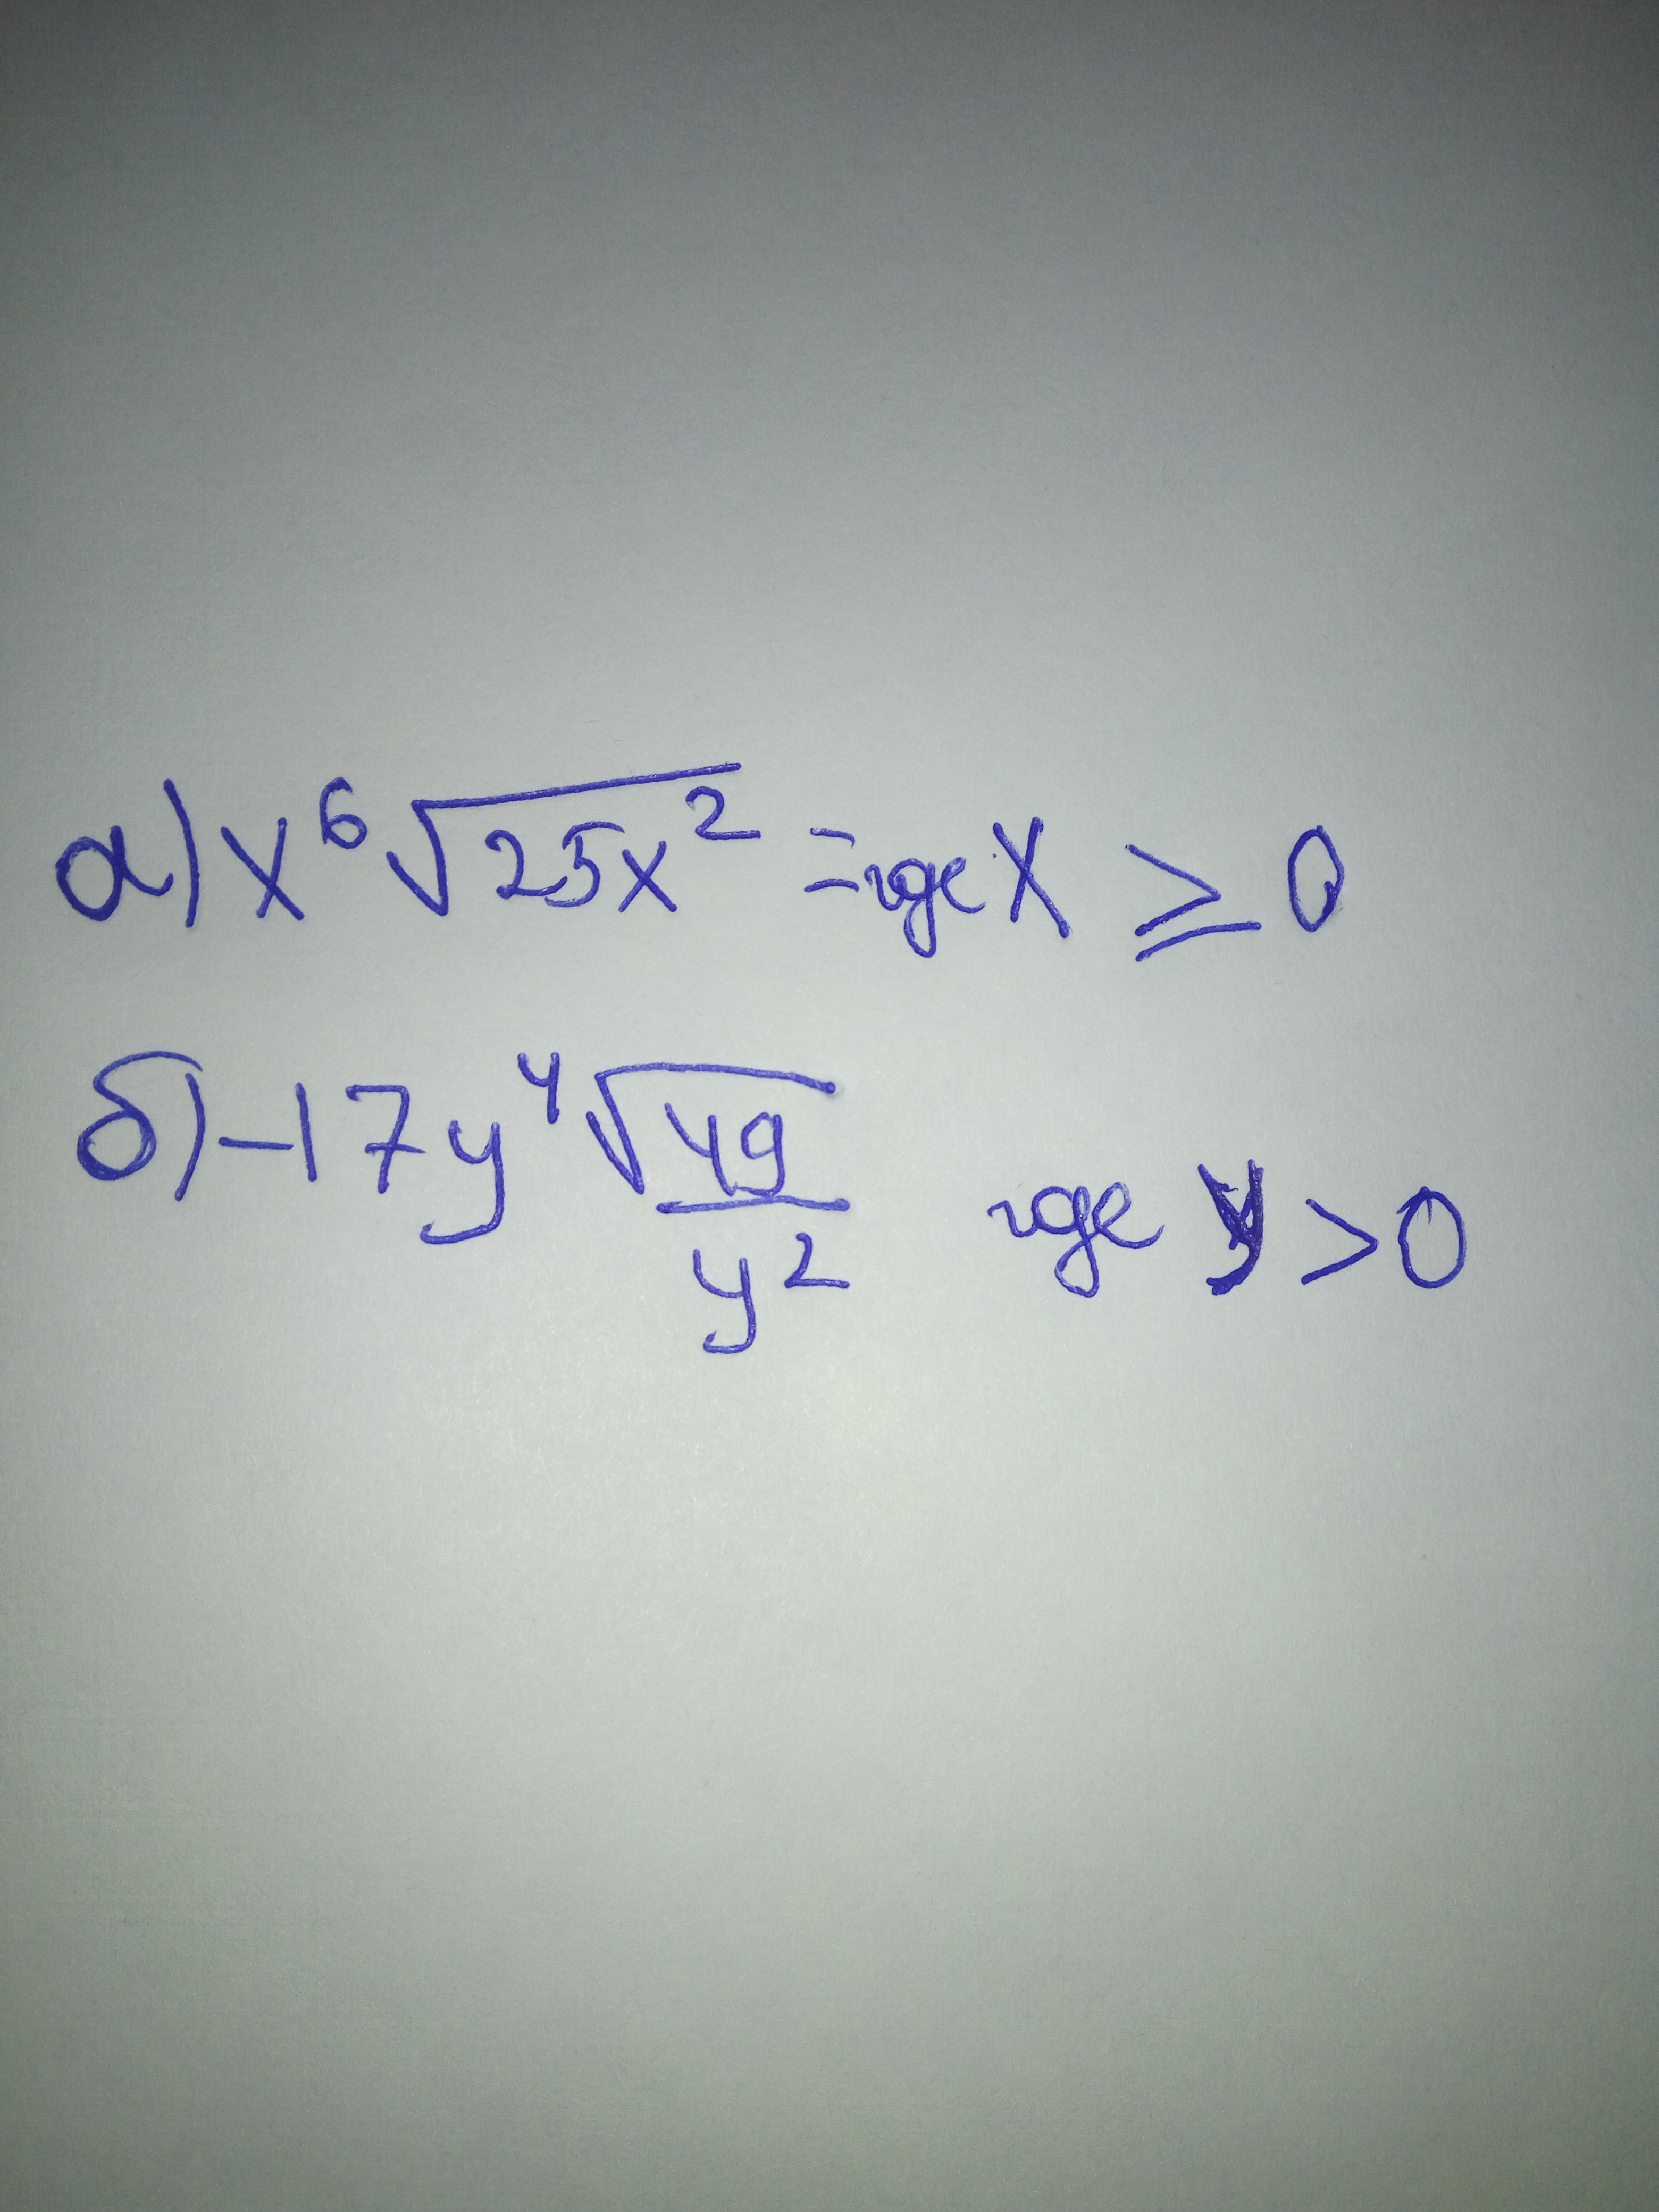 а) x⁶√25x² = где x ≥ 0
б) -17y⁴√49/y² где y > 0